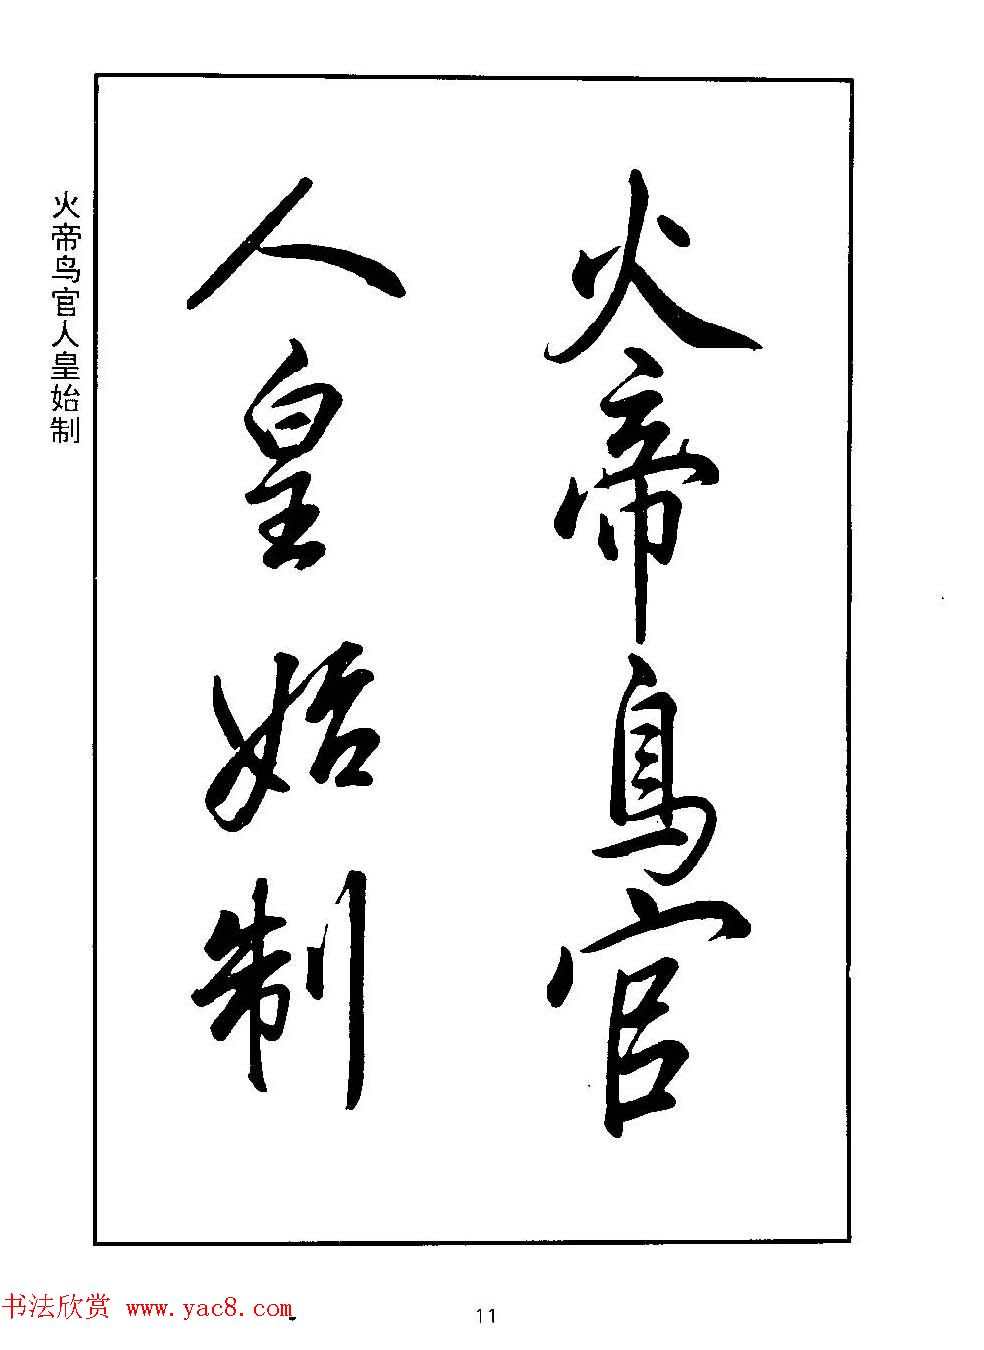 火帝鳥官
人皇始制
火帝鸟官人皇始制
书法欣赏 www.yac8.com
11